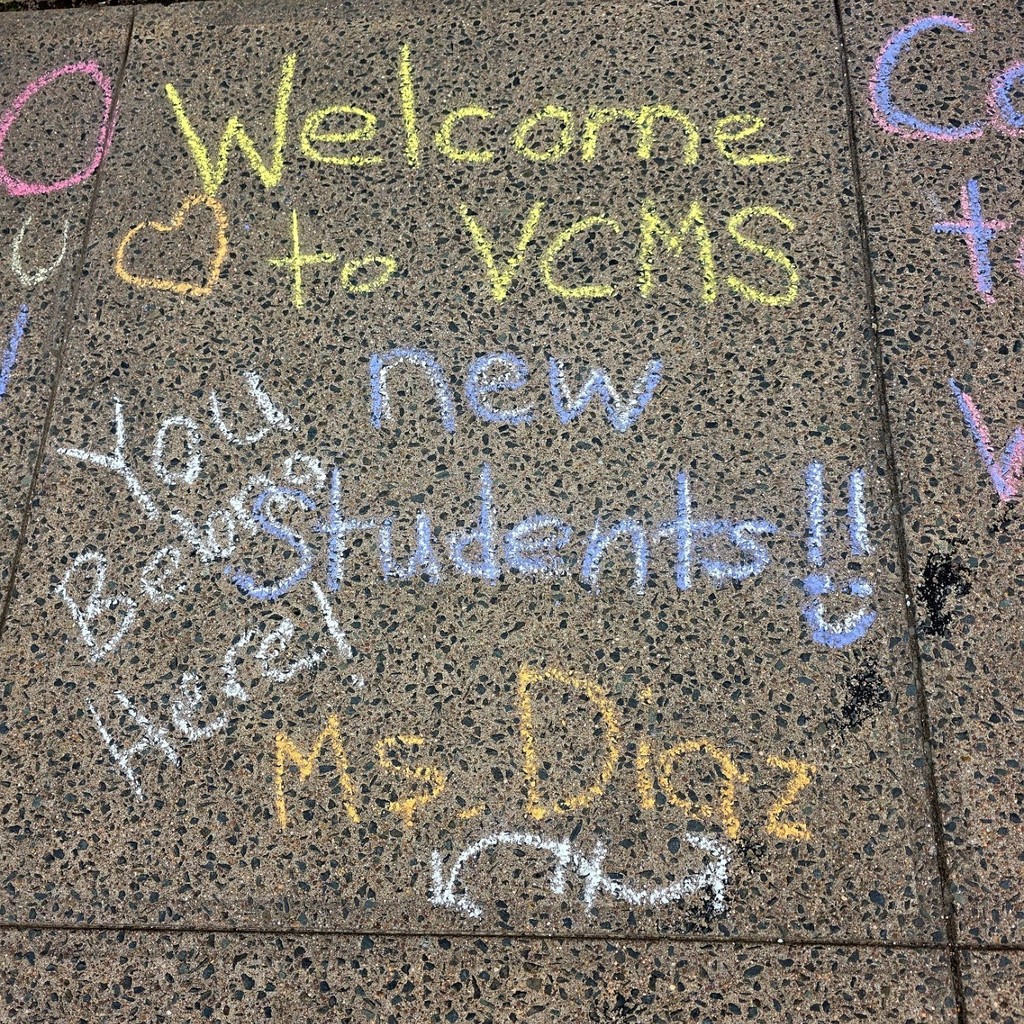 Welcome
to VCMS
new
Students!!
You
Belong
Here!
Ms. Diaz